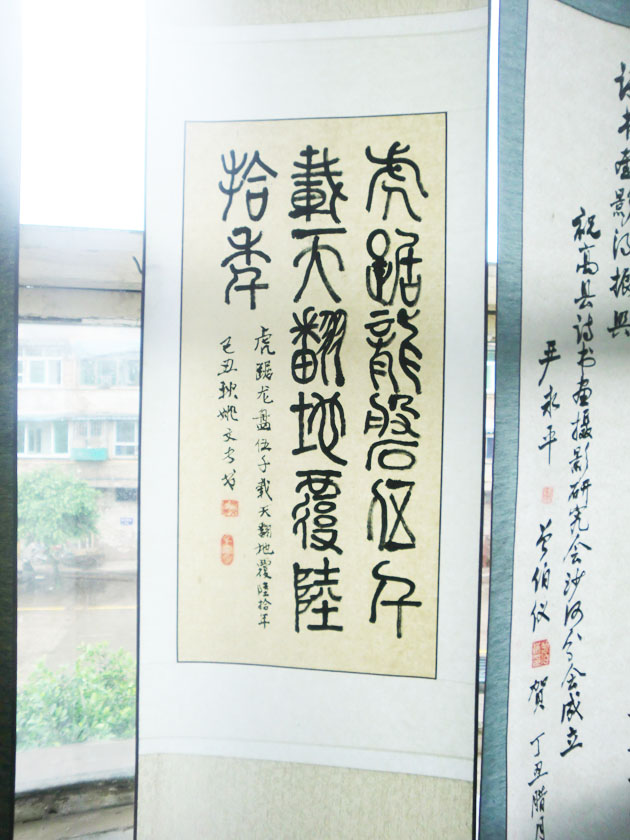 诗书画影得振兴
祝高县诗书画摄影研究会沙河分会成立
严永平
曾伯仪 贺 丁丑腊月
虎踞龍磐伍千
載天翻地覆陸
拾年
虎踞龙盘伍千载天翻地覆陸拾年
己丑秋姚文